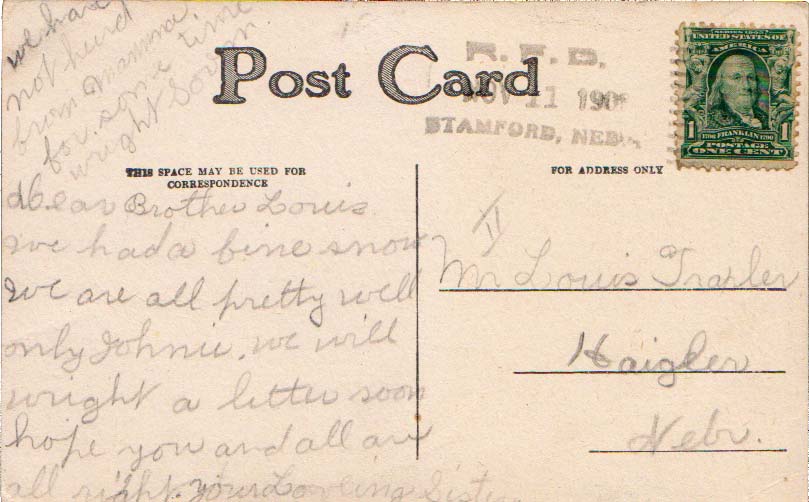 we have
not heard
from mamma
for some time
wright soon.
Post Card
R. F. D.
NOV 11 190
STAMFORD, NEB.
SERIES 1902
UNITED STATES OF
AMERICA
1 1706 FRANKLIN 1790 1
POSTAGE
ONE CENT
THIS SPACE MAY BE USED FOR
CORRESPONDENCE
FOR ADDRESS ONLY
Dear Brother Louis
we had a fine snow
we are all pretty well
only Johnie. we will
wright a letter soon
hope you and all are
all right. your Loveing Sister
11
Mr Louis Traxler
Haigler
Nebr.